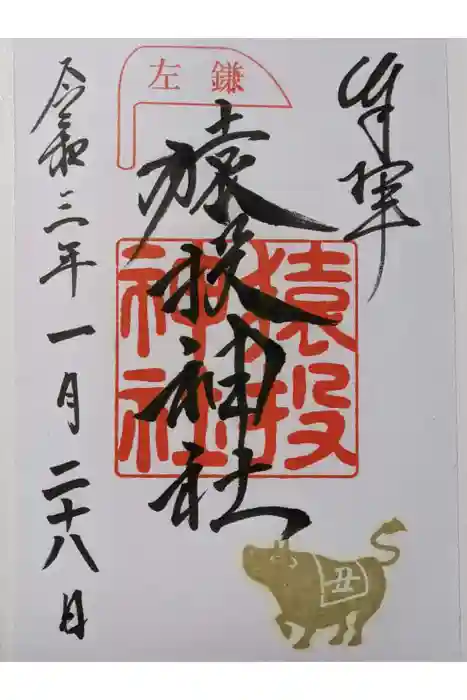 奉拝
左鎌
猿投神社
猿投
神社
令和三年一月二十八日
丑